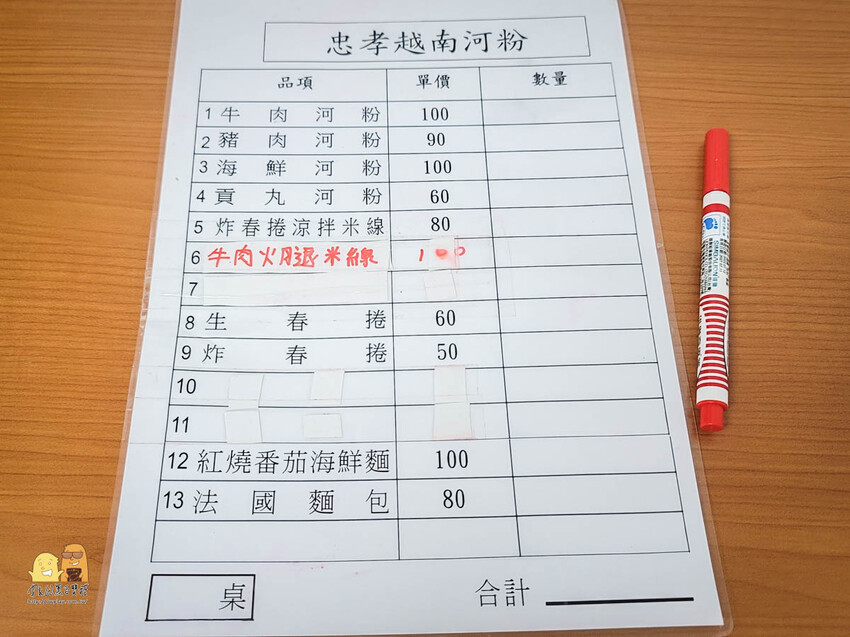 忠孝越南河粉
品項 單價 數量
1 牛肉河粉 100
2 豬肉河粉 90
3 海鮮河粉 100
4 貢丸河粉 60
5 炸春捲涼拌米線 80
6 牛肉火腿米線 100
7
8 生春捲 60
9 炸春捲 50
10
11
12 紅燒番茄海鮮麵 100
13 法國麵包 80
桌 合計